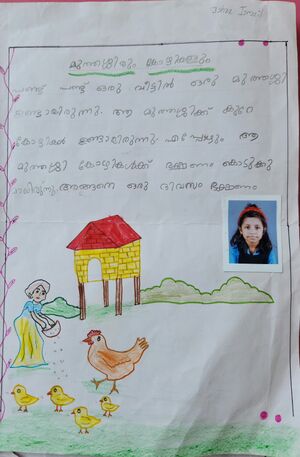 മുത്തശ്ശിയും കോഴികളും
പണ്ട് പണ്ട് ഒരു വീട്ടിൽ ഒരു മുത്തശ്ശി
ഉണ്ടായിരുന്നു. ആ മുത്തശ്ശിക്ക് കുറേ
കോഴികൾ ഉണ്ടായിരുന്നു. എപ്പോഴും ആ
മുത്തശ്ശി കോഴികൾക്ക് ഭക്ഷണം കൊടുക്കു
മായിരുന്നു. അങ്ങനെ ഒരു ദിവസം ഭക്ഷണം